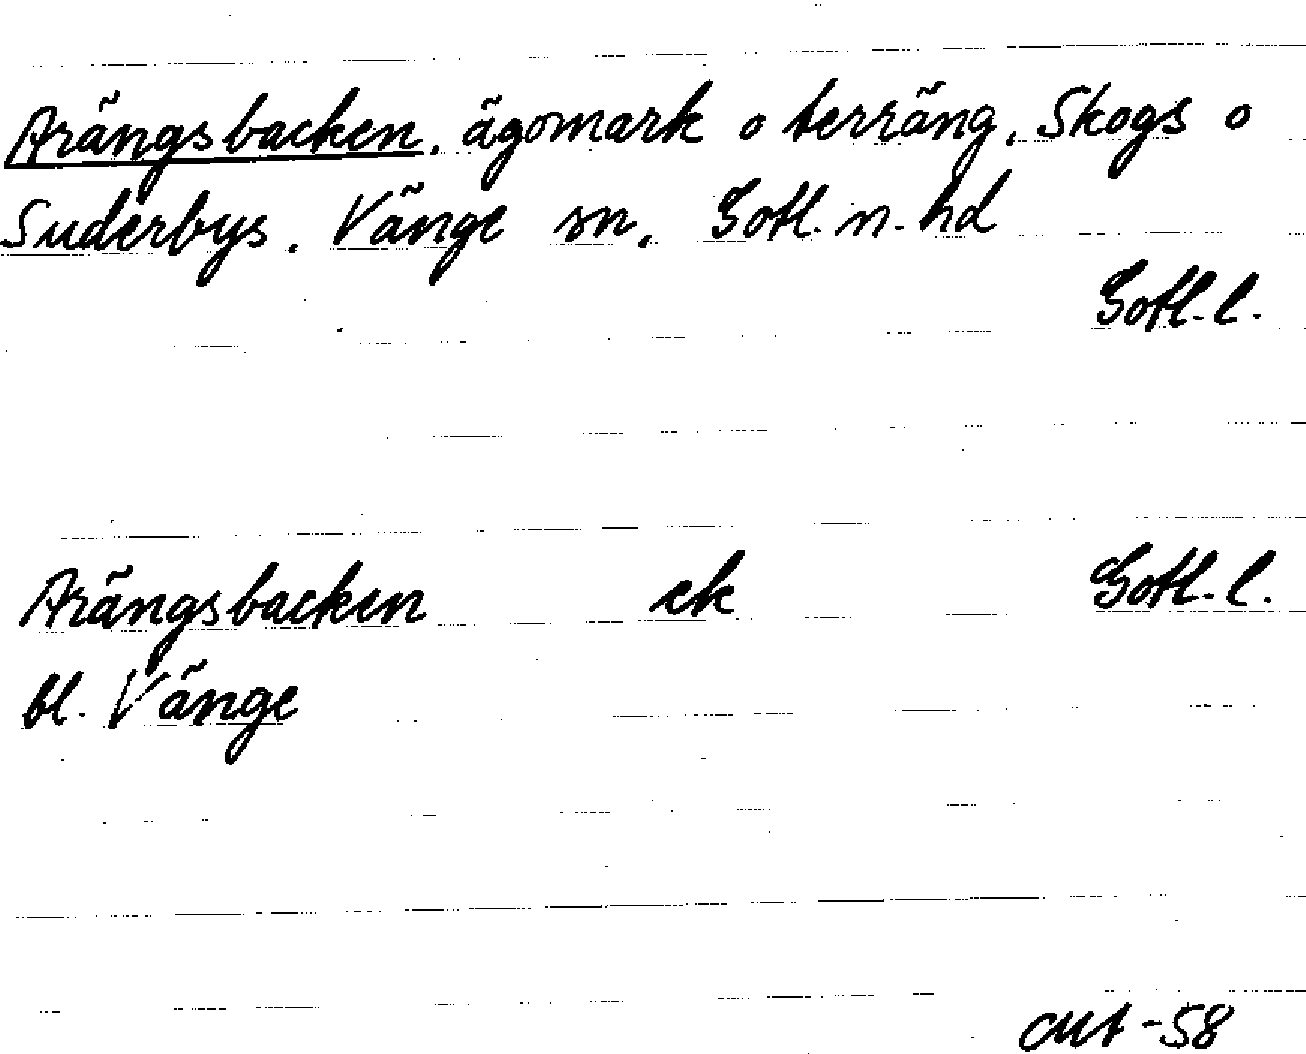 Arängsbacken. ägomark o terräng. Skogs o
Suderbys. Vänge sn. Gotl. n. hd
Gotl. l.
Arängsbacken ek Gotl. l.
bl. Vänge
-58